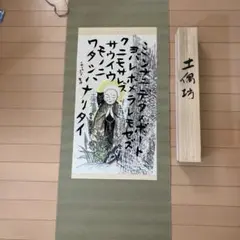 ミンナニデクノボート
ヨバレホメラレモセズ
クニモサレズ
サウイウ
モノニ
ワタシハナリタイ
土偶坊